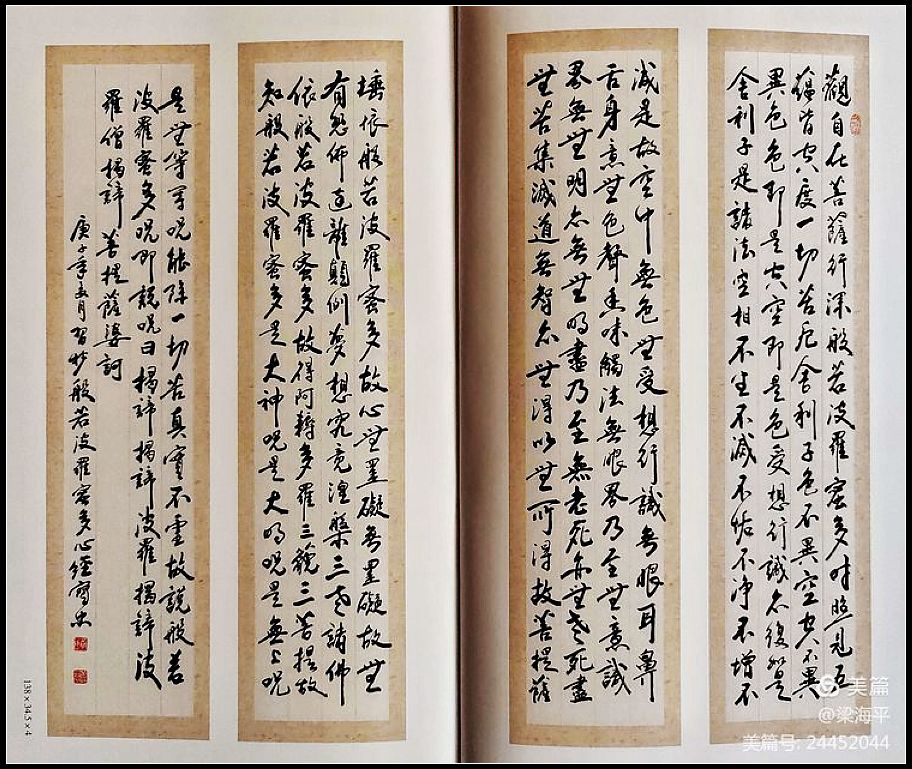 觀自在菩薩行深般若波羅蜜多時照見五
蘊皆空度一切苦厄舍利子色不異空空不異
異色色即是空空即是色受想行識亦復如是
舍利子是諸法空相不生不滅不垢不净不增不
減是故空中無色無受想行識無眼耳鼻
舌身意無色聲香味觸法無眼界乃至無意識
界無無明亦無無明盡乃至無老死亦無老死盡
無苦集滅道無智亦無得以無所得故菩提薩
埵依般若波羅蜜多故心無罣礙無罣礙故無
有恐怖遠離顛倒夢想究竟涅槃三世諸佛
依般若波羅蜜多故得阿耨多羅三藐三菩提故
知般若波羅蜜多是大神咒是大明咒是無上咒
是無等等咒能除一切苦真實不虛故說般若
波羅蜜多咒即說咒曰揭諦揭諦波羅揭諦波
羅僧揭諦 菩提薩婆訶
庚子年 月習抄般若波羅蜜多心經
138×34.5×4
美篇
@梁海平
美篇号: 24452044